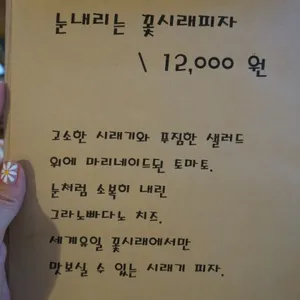 눈내리는 꽃시래피자
\ 12,000 원
고소한 시래기와 푸짐한 샐러드
위에 마리네이드된 토마토.
눈처럼 소복히 내린
그라노빠다노 치즈.
세계유일 꽃시래에서만
맛보실 수 있는 시래기 피자.